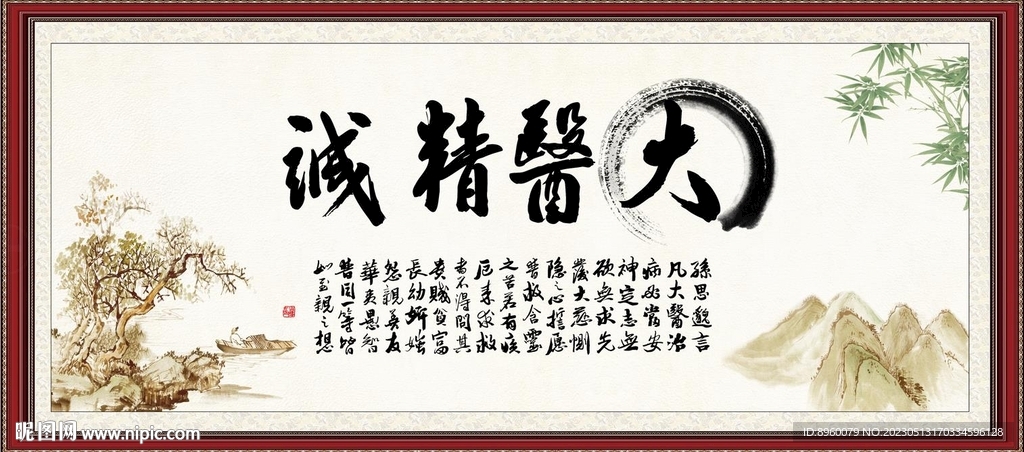 大醫精誠
孫思邈言
凡大醫治
病必當安
神定志無
欲無求先
發大慈惻
隱之心誓願
普救含靈
之苦若有疾
厄来求救
者不得問其
貴賤貧富
長幼妍媸
怨親善友
華夷愚智
普同一等皆
如至親之想
昵图网 www.nipic.com
ID:8960079 NO:20230513170334596128